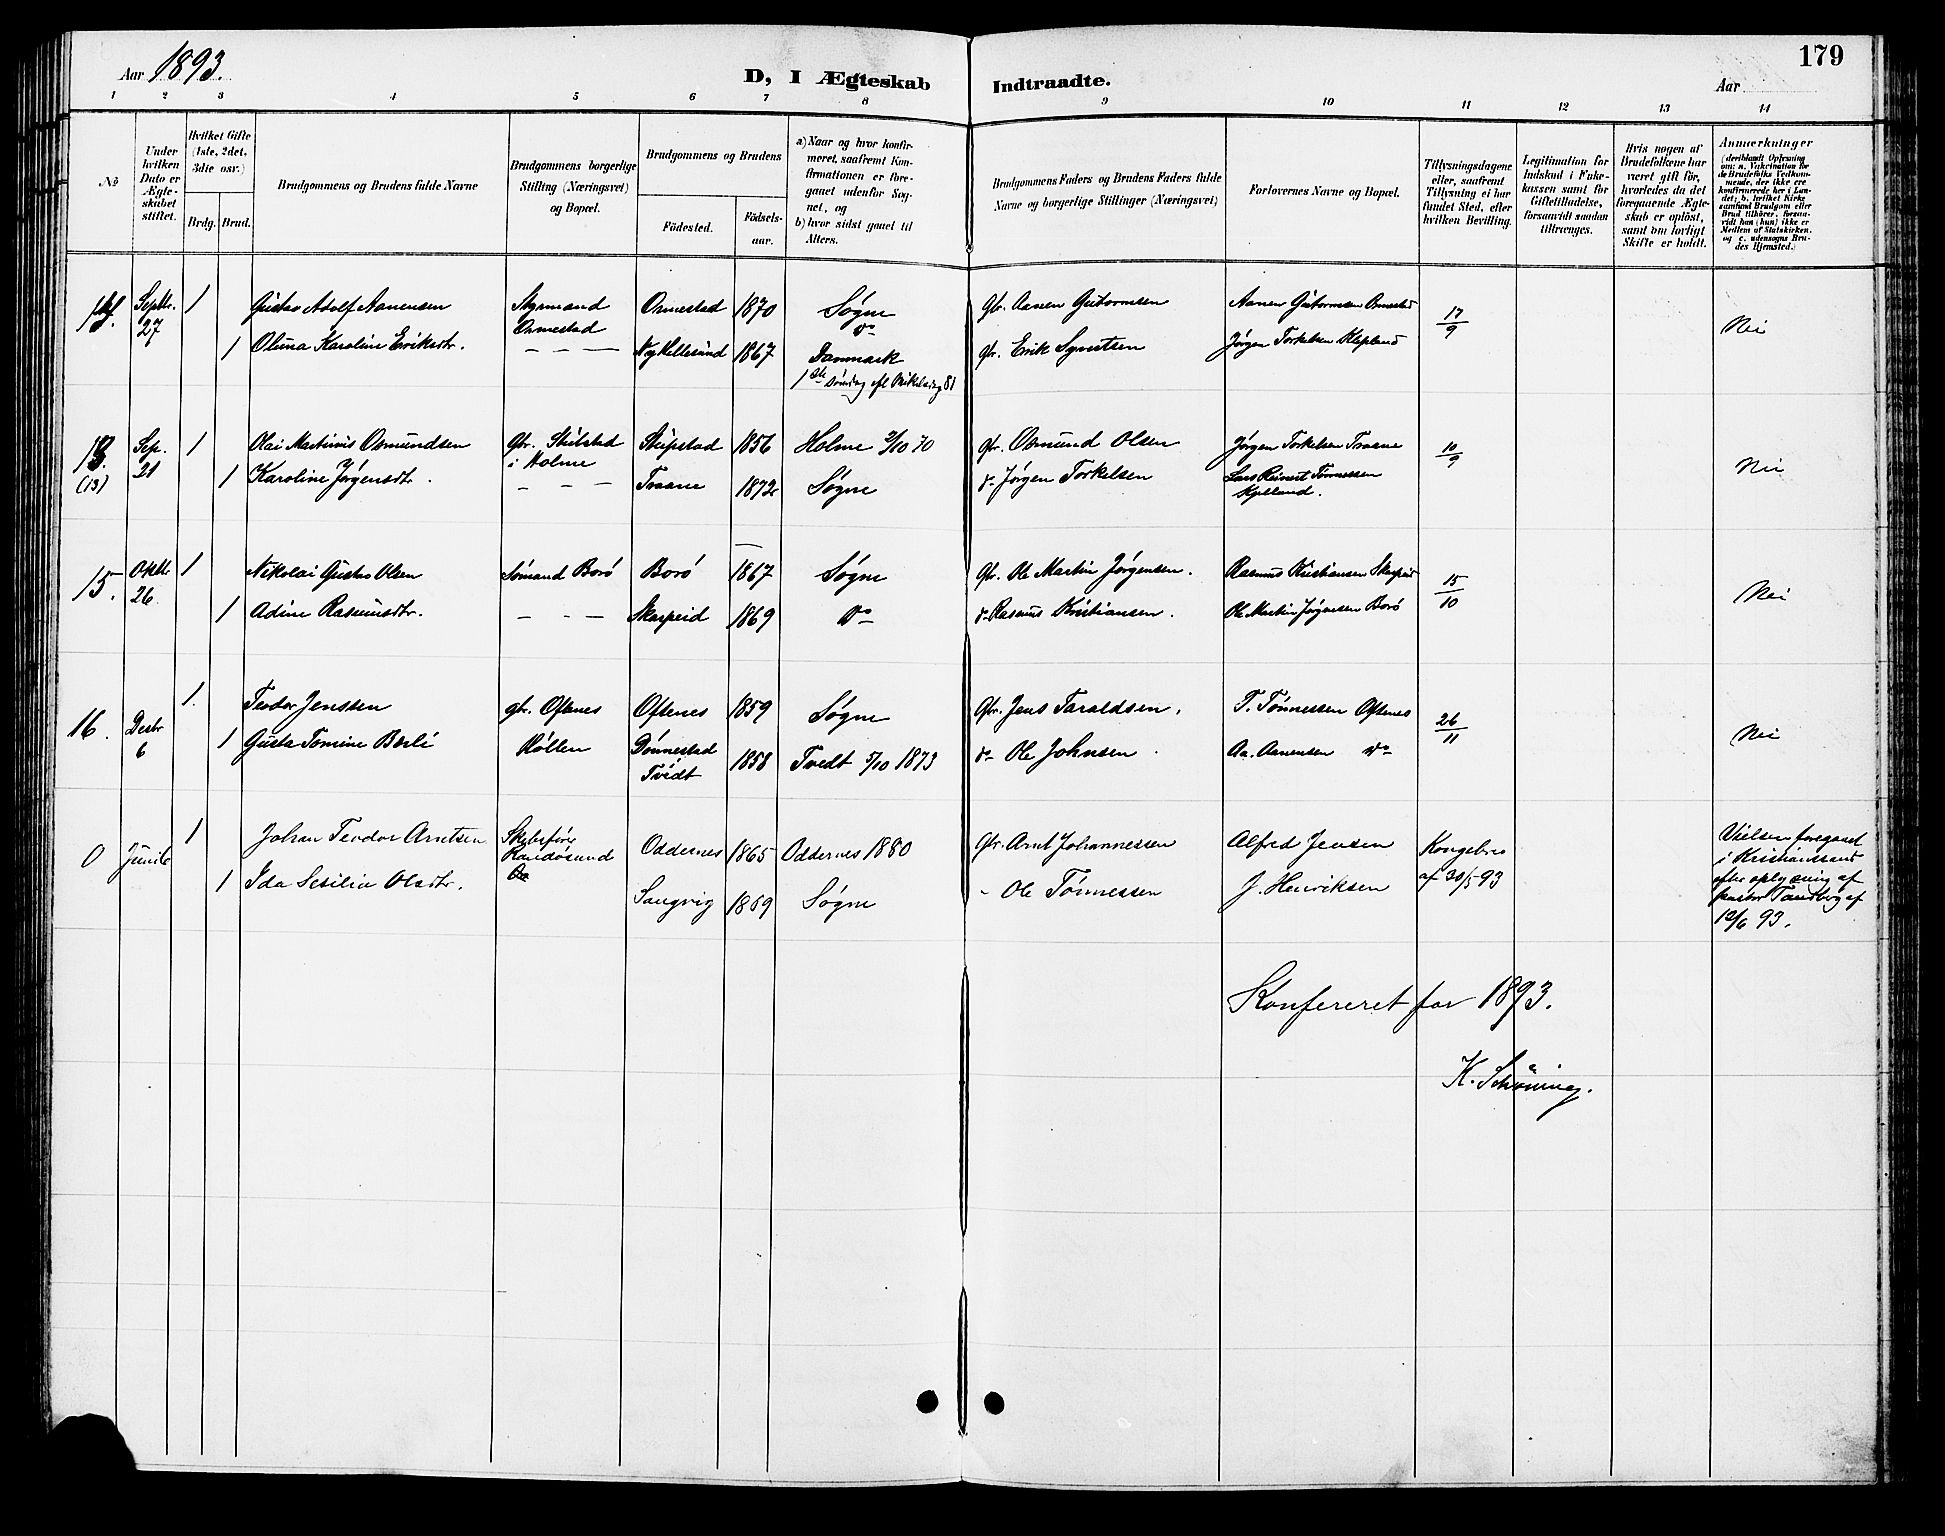 179
Aar 1893.
D, I Ægteskab Indtraadte.
Aar
1 2 3 4 5 6 7 8 9 10 11 12 13 14
No
Under hvilken Dato er Ægteskabet stiftet.
Hvilket Gifte (1ste, 2det, 3die osv.)
Brdg. Brud.
Brudgommens og Brudens fulde Navne
Brudgommens borgerlige Stilling (Næringsvei) og Bopæl.
Brudgommens og Brudens
Födested.
Födselsaar.
a) Naar og hvor konfirmeret, saafremt Konfirmationen er foregaaet udenfor Sognet, og
b) hvor sidst gaaet til Alters.
Brudgommens Faders og Brudens Faders fulde Navne og borgerlige Stillinger (Næringsvei)
Forlovernes Navne og Bopæl.
Tillysningsdagene eller, saafremt Tillysning ei har fundet Sted, efter hvilken Bevilling.
Legitimation for Indskud i Enkekassen samt for Giftetilladelse, forsaavidt saadan tiltrænges.
Hvis nogen af Brudefolkene har været gift för, hvorledes da det foregaaende Ægteskab er oplöst, samt om lovligt Skifte er holdt.
Anmerkninger
(deriblandt Oplysning om: a. Vakcination for de Brudefolks Vedkommende, der ikke ere konfirmerede her i Landet; b. hvilket Kirkesamfund Brudgom eller Brud tilhörer, forsaavidt han (hun) ikke er Medlem af Statskirken, og c. udensogns Brudes Hjemsted.)
14. Septbr. 27 1 Gustav Adolf Aanensen Styrmand Ormestad Ormestad 1870 Søgne do Gbr. Aanen Guttormsen Aanen Guttormsen Ormestad 17/9 Nei
1 Oluna Karoline Eriksdtr. — — — Ny Hellesund 1867 Danmark 1ste søndag eft Mikelsdag 81 gbr. Erik Syvertsen Jørgen Torkelsen Klepland
13. (13) Sep. 21 1 Olai Martinus Osmundsen Gbr. i Holme 1856 Holme 2/10 70 gbr. Osmund Olsen Jørgen Torkelsen Traane 10/9 Nei
1 Karoline Jørgensdtr. - - - Traane 1872 Søgne do Jørgen Torkelsen Lars Reinert Tønnessen
15. Oktbr 26 1 Nikolai Gustav Olsen Sømand Borø Borø 1867 Søgne Gbr. Ole Martin Jørgensen. Rasmus Kristiansen Skarpeid 15/10 Nei
1 Adine Rasmusdtr. - - - Skarpeid 1869 do do Rasmus Kristiansen. Ole Martin Jørgensen Borø
16. Decbr 6 1. Teodor Jenssen gbr. Oftenes Oftenes 1859 Søgne Gbr. Jens Taraldsen. T. Tønnessen Oftenes 26/11 Nei
1 Gusta Tomine Høllen Dønnestad Tvedt 1858 Tvedt 5/10 1873 do Ole Johnsen. Aa. Aanensen do
0 Juni 6 1 Johan Teodor Arntsen Skibsfører Randøsund Oddernes 1865 Oddernes 1880 Gbr. Arnt Johannessen Alfred Jensen Kongebrev af 30/5 93 Vielsen foregaaet i Kristianssand efter oplysning af pastor Tandberg af 12/6 93.
1 Ida Sesilie Olsdtr. do Sangvig 1869 Søgne - Ole Tønnessen J. Henriksen
Konfereret for 1893.
K. Schöning.